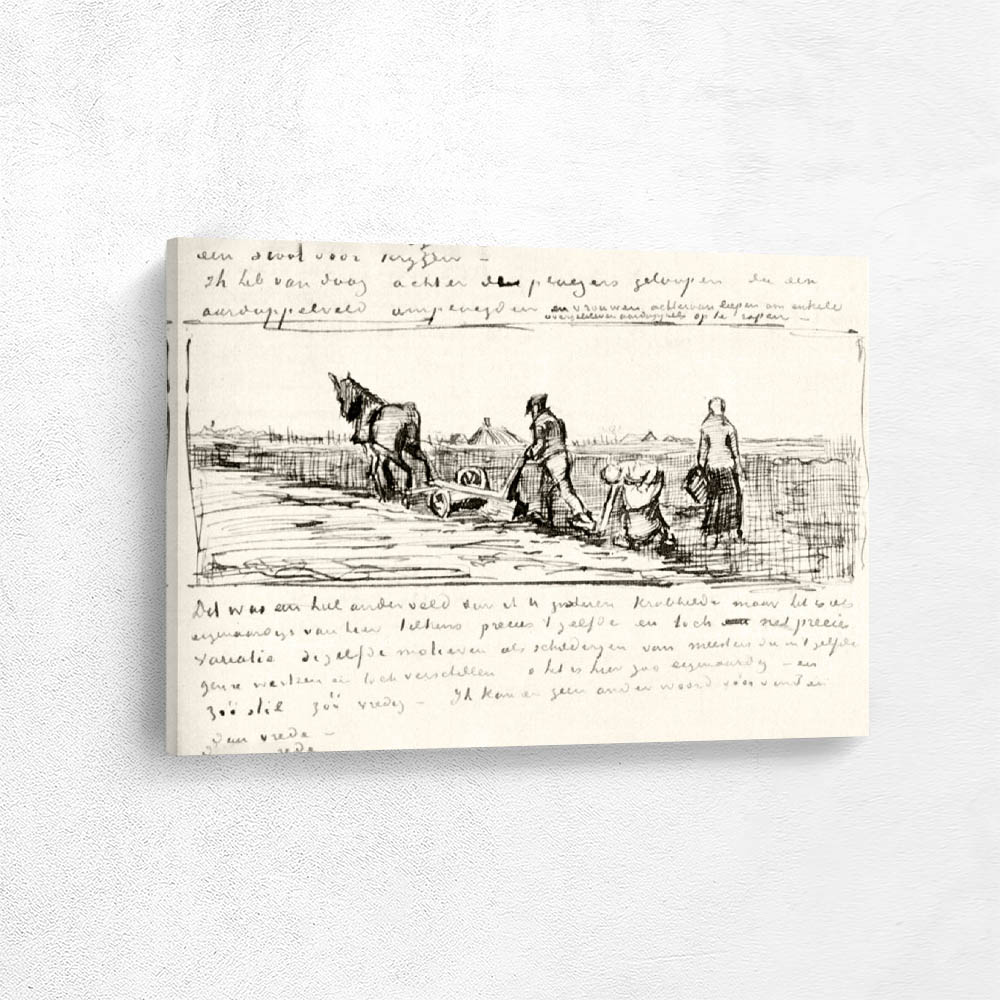 een idee voor krijgen –
Ik heb van daag achter de ploegers geloopen die een
aardappelveld omploegden en vrouwen achteraan liepen om enkele
overgebleven aardappels op te rapen –
Dit was een heel ander veld dan ik U gisteren krabbelde maar het is iets
eigenaardigs van hier telkens precies 't zelfde en toch net precies
variatie dezelfde motieven als schilderijen van meesters die in 't zelfde
genre werken en toch verschillen o het is hier zoo eigenaardig – en
zóó stil zóó vredig – Ik kan er geen ander woord voor vinden
dan vrede –